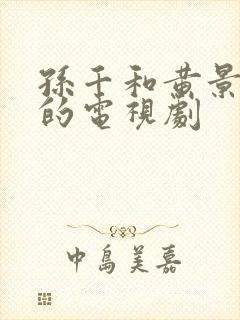 孫千和黃景
的電視劇
中島美嘉